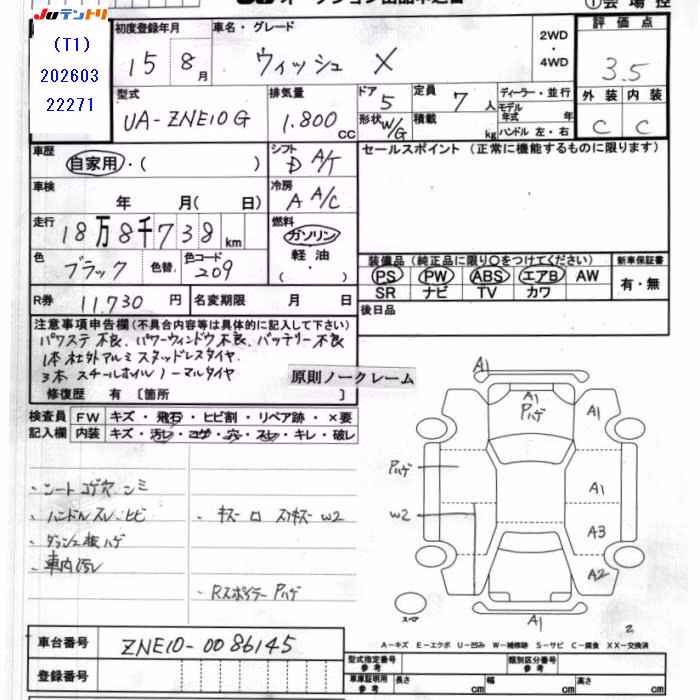 JUテントリ
(T1)
202603
22271
初度登録年月 車名・グレード
15 8月 ウィッシュ X
2WD
・
4WD
評価点
3.5
外装 内装
C C
型式 排気量 ドア 定員 ディーラー・並行
UA-ZNE10G 1.800cc 5 7人
形状 W/G 積載 kg
モデル年式 年
ハンドル 左・右
車歴 自家用・( )
シフト D A/T
セールスポイント(正常に機能するものに限ります)
車検 年 月( 日)
冷房 A A/C
走行 18万8千738km
燃料 ガソリン
軽油
・
( )
色 ブラック 色替 色コード 209
装備品(純正品に限り○をつけてください) 新車保証書
PS PW ABS エアB AW 有・無
SR ナビ TV カワ
R券 11.730円 名変期限 月 日
後日品
注意事項申告欄(不具合内容等は具体的に記入して下さい)
パワステ不良、パワーウィンドウ不良、バッテリー不良
1本社外アルミスタッドレスタイヤ
3本スチールホイルノーマルタイヤ
修復歴 有〔箇所 〕
原則ノークレーム
検査員記入欄
FW キズ・飛石・ヒビ割・リペア跡・×要
内装 キズ・汚レ・コゲ・穴・スレ・キレ・破レ
・シートコゲ穴・シミ
・ハンドルスレ・ヒビ
・ダッシュ板ハゲ
・車内汚レ
・Rスポイラー Pハゲ
A1
A1
Pハゲ
A1
Pハゲ
A1
W2
A3
A2
スペア
A1
2
A-キズ E-エクボ U-凹み W-補修跡 S-サビ C-腐食 XX-交換済
車台番号 ZNE10-0086145
登録番号
型式指定番号 参考 類別区分番号 参考
車庫証明用 参考 長さ cm 幅 cm 高さ cm